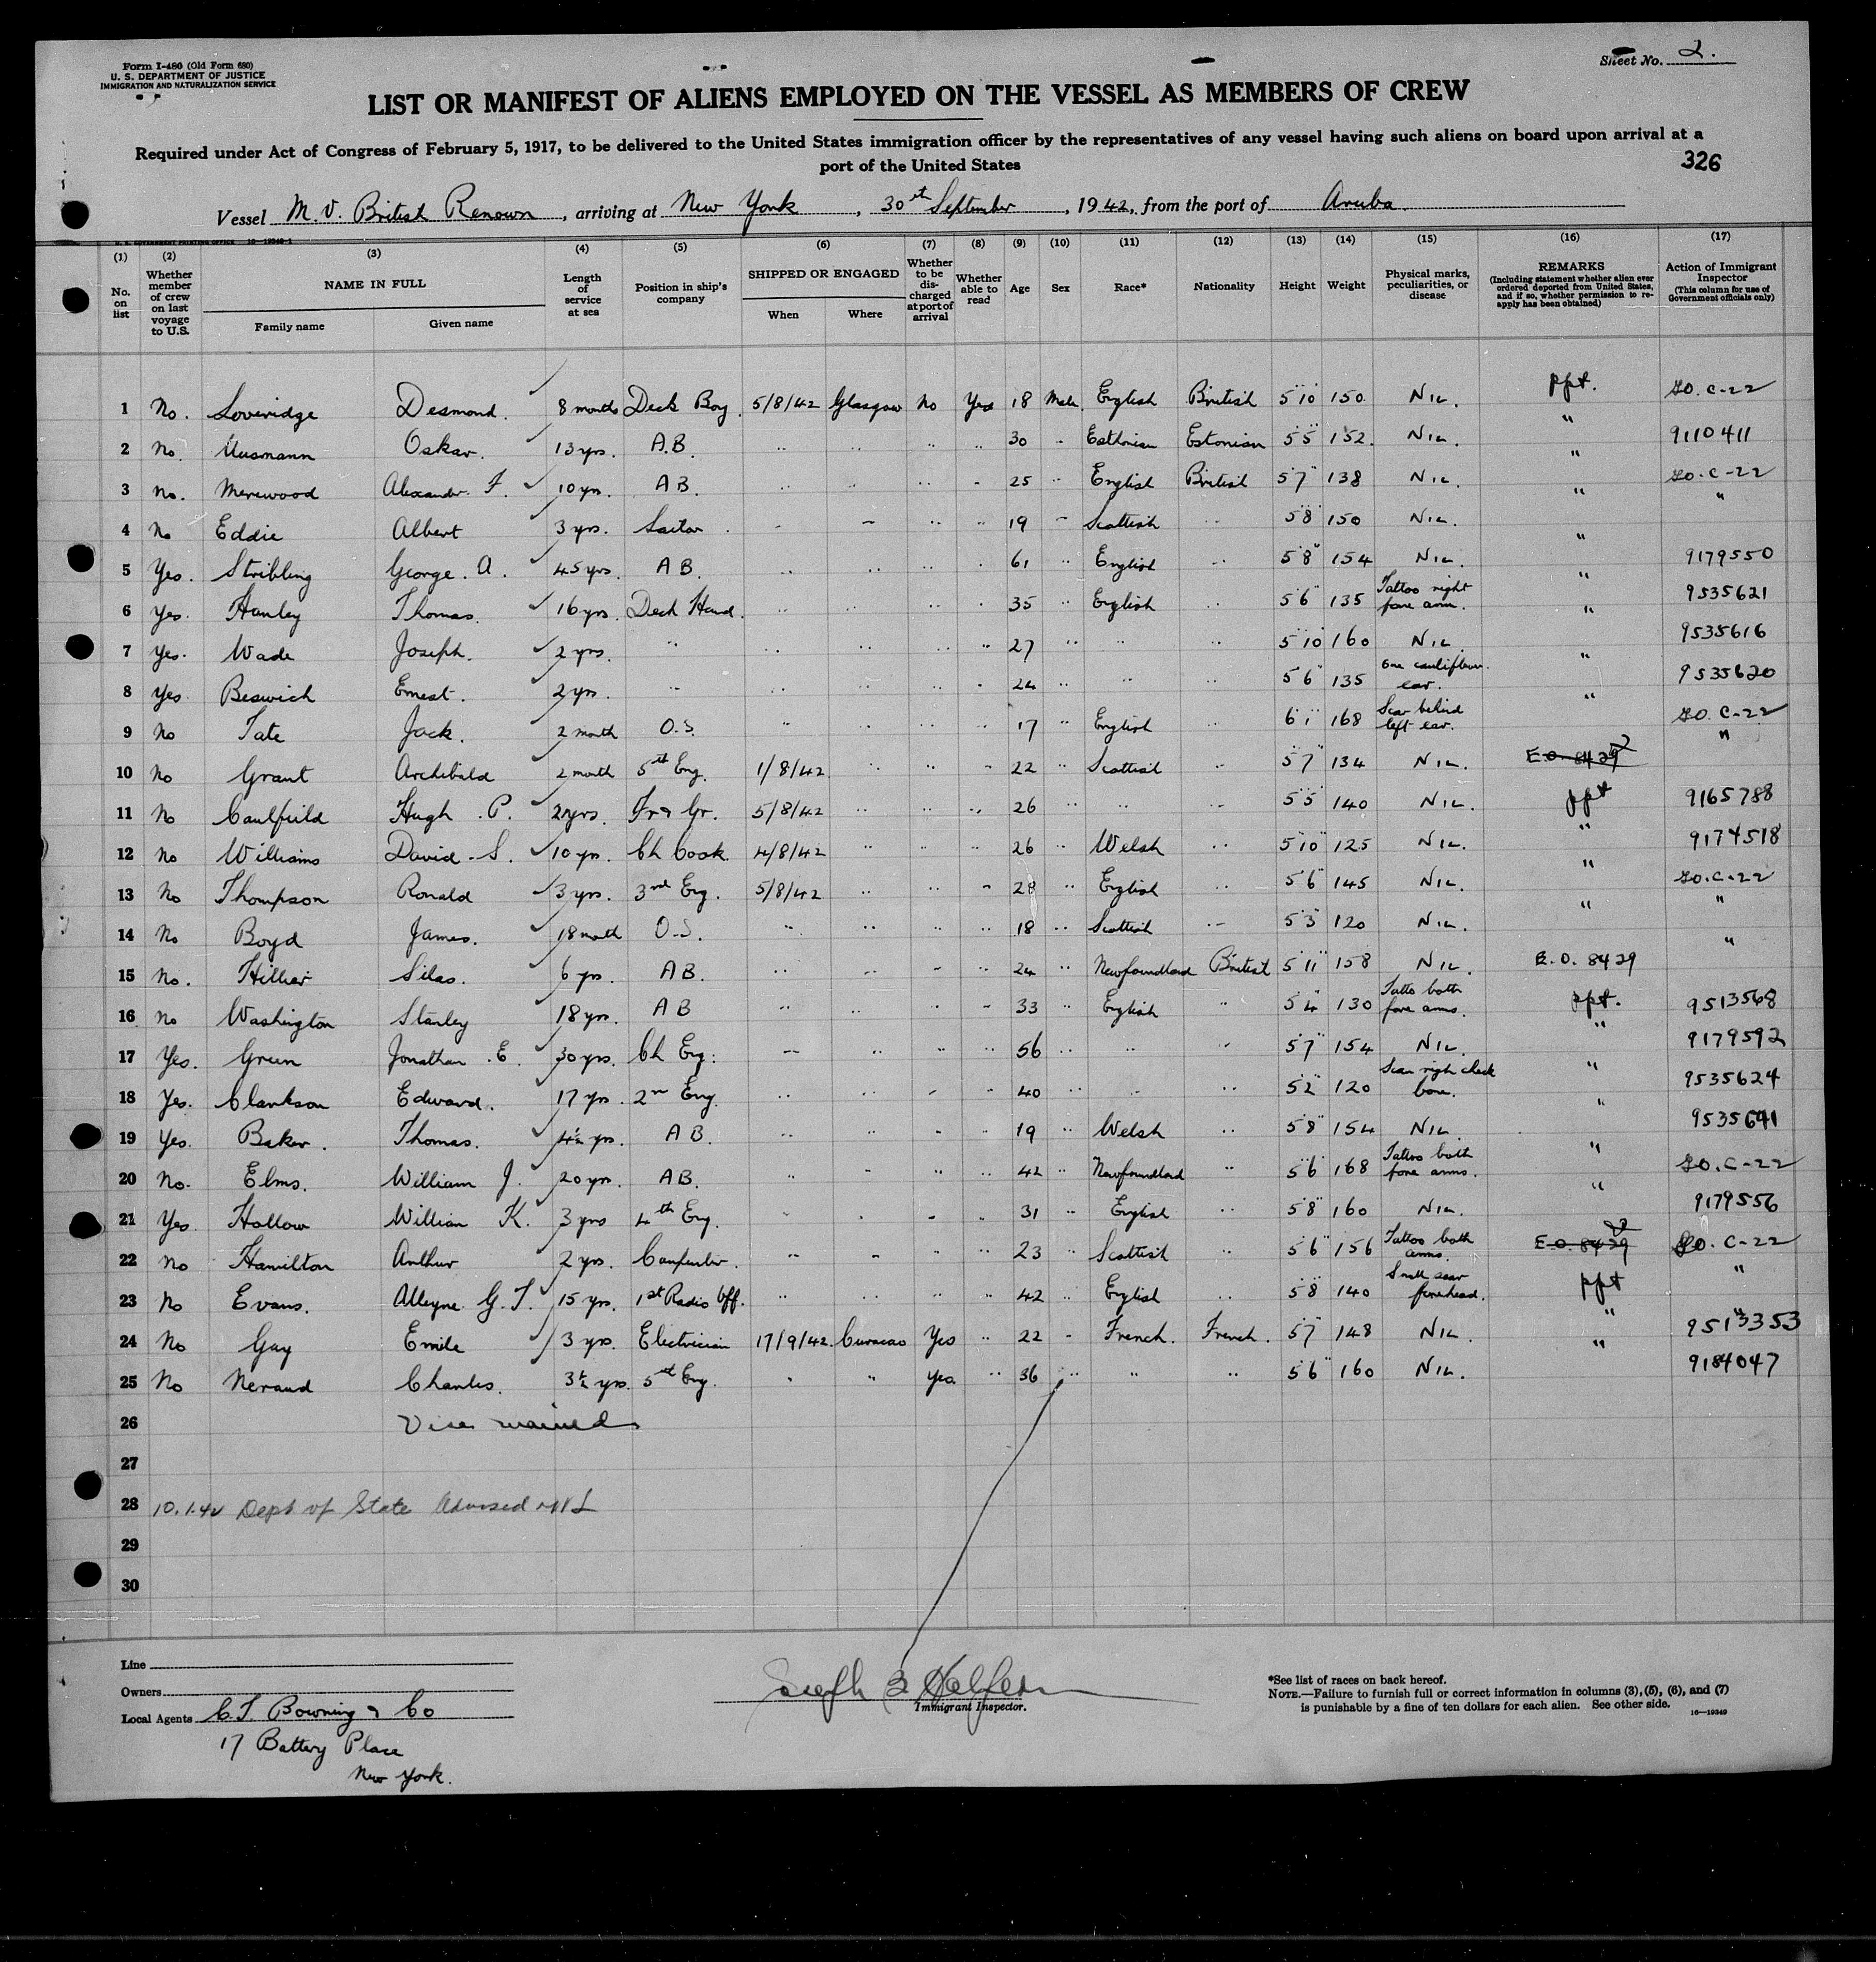 Form I-480 (Old Form 680)
U. S. DEPARTMENT OF JUSTICE
IMMIGRATION AND NATURALIZATION SERVICE
Sheet No. 2.
LIST OR MANIFEST OF ALIENS EMPLOYED ON THE VESSEL AS MEMBERS OF CREW
Required under Act of Congress of February 5, 1917, to be delivered to the United States immigration officer by the representatives of any vessel having such aliens on board upon arrival at a
port of the United States
326
Vessel M.V. British Renown, arriving at New York, 30th September, 1942, from the port of Aruba
(1) (2) (3) (4) (5) (6) (7) (8) (9) (10) (11) (12) (13) (14) (15) (16) (17)
No. on list Whether member of crew on last voyage to U.S. NAME IN FULL Family name Given name Length of service at sea Position in ship's company SHIPPED OR ENGAGED When Where Whether to be discharged at port of arrival Whether able to read Age Sex Race* Nationality Height Weight Physical marks, peculiarities, or disease REMARKS (Including statement whether alien ever ordered deported from United States, and if so, whether permission to re-apply has been obtained) Action of Immigrant Inspector (This column for use of Government officials only)
1 No. Loveridge Desmond. 8 months Deck Boy. 5/8/42 Glasgow No Yes 18 Male English British 5'10" 150 Nil. ppt. GO. C-22
2 No. Uusmann Oskar. 13 yrs. A.B. " " " " 30 " Esthonian Estonian 5'5" 152. Nil. " 9110411
3 No. Merewood Alexander F. 10 yrs. AB. " " " " 25 " English British 5'7" 138 Nil. " GO. C-22
4 No Eddie Albert 3 yrs. Sailor " " " " 19 " Scottish " 5'8" 150 Nil. " "
5 Yes. Stribling George. A. 45 yrs. AB. " " " " 61 " English " 5'8" 154 Nil. " 9179550
6 Yes. Hanley Thomas. 16 yrs. Deck Hand. " " " " 35 " English " 5'6" 135 Tattoo right fore arm. " 9535621
7 Yes. Wade Joseph. 2 yrs. " " " " " 27 " " " 5'10" 160 Nil. " 9535616
8 Yes Beswick Ernest. 2 yrs. " " " " " 24 " " " 5'6" 135 One cauliflower ear. " 9535620
9 No Tate Jack. 2 month O.S. " " " " 17 " English " 6'1" 168 Scar behind left ear. " GO. C-22
10 No Grant Archibald 2 month 5th Eng. 1/8/42 " " " 22 " Scottish " 5'7" 134 Nil. E.O. 8429 "
11 No Caulfield Hugh. P. 2 yrs. Fr & Gr. 5/8/42 " " " 26 " " " 5'5" 140 Nil. ppt 9165788
12 No Williams David. S. 10 yrs. Ch Cook. 4/8/42 " " " 26 " Welsh " 5'10" 125 Nil. " 9174518
13 No Thompson Ronald 3 yrs. 3rd Eng. 5/8/42 " " " 28 " English " 5'6" 145 Nil. " GO. C-22
14 No Boyd James. 18 month O.S. " " " " 18 " Scottish " 5'3" 120 Nil. " "
15 No. Hillier Silas. 6 yrs. AB. " " " " 24 " Newfoundland British 5'11" 158 Nil. E.O. 8429 "
16 No Washington Stanley 18 yrs. AB " " " " 33 " English " 5'4" 130 Tatto both fore arms. ppt. 9513568
17 Yes. Green Jonathan. E. 30 yrs. Ch Eng. " " " " 56 " " " 5'7" 154 Nil. " 9179592
18 Yes. Clarkson Edward. 17 yrs. 2nd Eng. " " " " 40 " " " 5'2" 120 Scar righ cheek bone. " 9535624
19 Yes. Baker. Thomas. 4½ yrs. AB. " " " " 19 " Welsh " 5'8" 154 Nil. " 9535641
20 No. Elms. William J. 20 yrs. AB. " " " " 42 " Newfoundland " 5'6" 168 Tattoo both fore arms. " GO. C-22
21 Yes. Hollow William K. 3 yrs 4th Eng. " " " " 31 " English " 5'8" 160 Nil. " 9179556
22 No Hamilton Arthur 2 yrs. Carpenter. " " " " 23 " Scottish " 5'6" 156 Tattoo both arms. E.O. 8429 GO. C-22
23 No Evans. Alleyne G.T. 15 yrs. 1st Radio Off. " " " " 42 " English " 5'8" 140 Small scar forehead. ppt "
24 No Guy Emile 3 yrs. Electrician 17/9/42. Curacao Yes " 22 " French. French. 5'7" 148 Nil. " 9513353
25 No Neraud Charles. 3½ yrs. 5th Eng. " " Yes. " 36 " " " 5'6" 160 Nil. " 9184047
26 Visa waived
27
28 10.1.42 Dept of State Advised
29
30
Line
Owners
Local Agents C.T. Bowring & Co
17 Battery Place
New York.
Joseph Halfern
Immigrant Inspector.
*See list of races on back hereof.
NOTE.—Failure to furnish full or correct information in columns (3), (5), (6), and (7)
is punishable by a fine of ten dollars for each alien. See other side.
16—19349